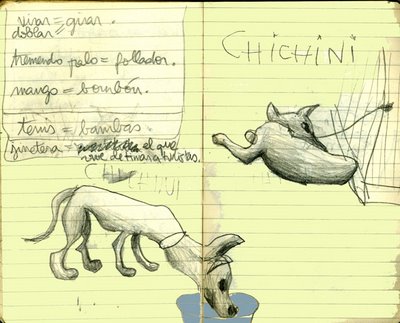 virar = girar.
doblar =
tremendo palo = follador.
mango = bombón.
tenis = bambas.
jinetera = el que
vive de timar a turistas.
CHICHINI
CHICHINI